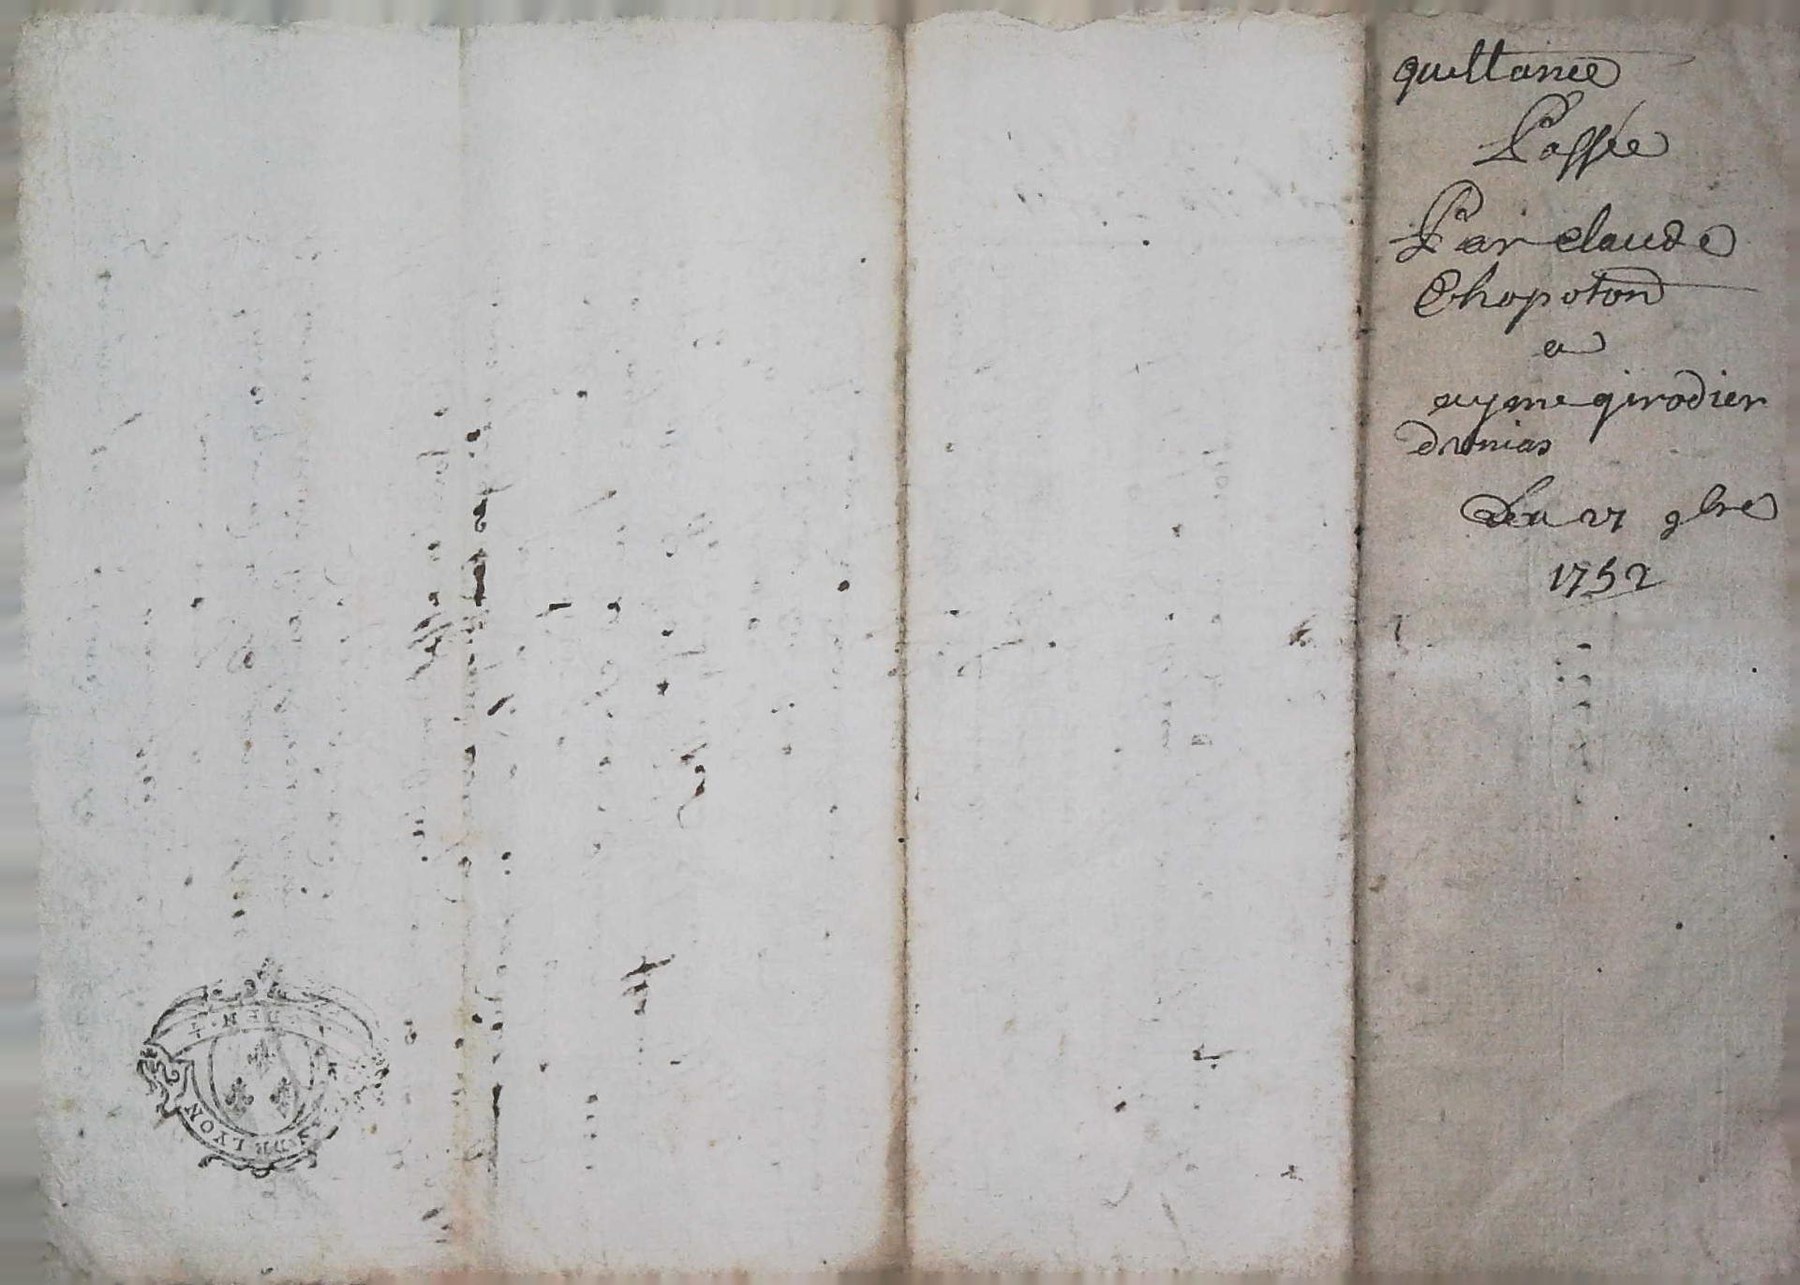 quittance
Passée
Par claude
Chopoton
a
eyme girodier
dunias
Du 27 9bre
1752
DEN·
DE LYON